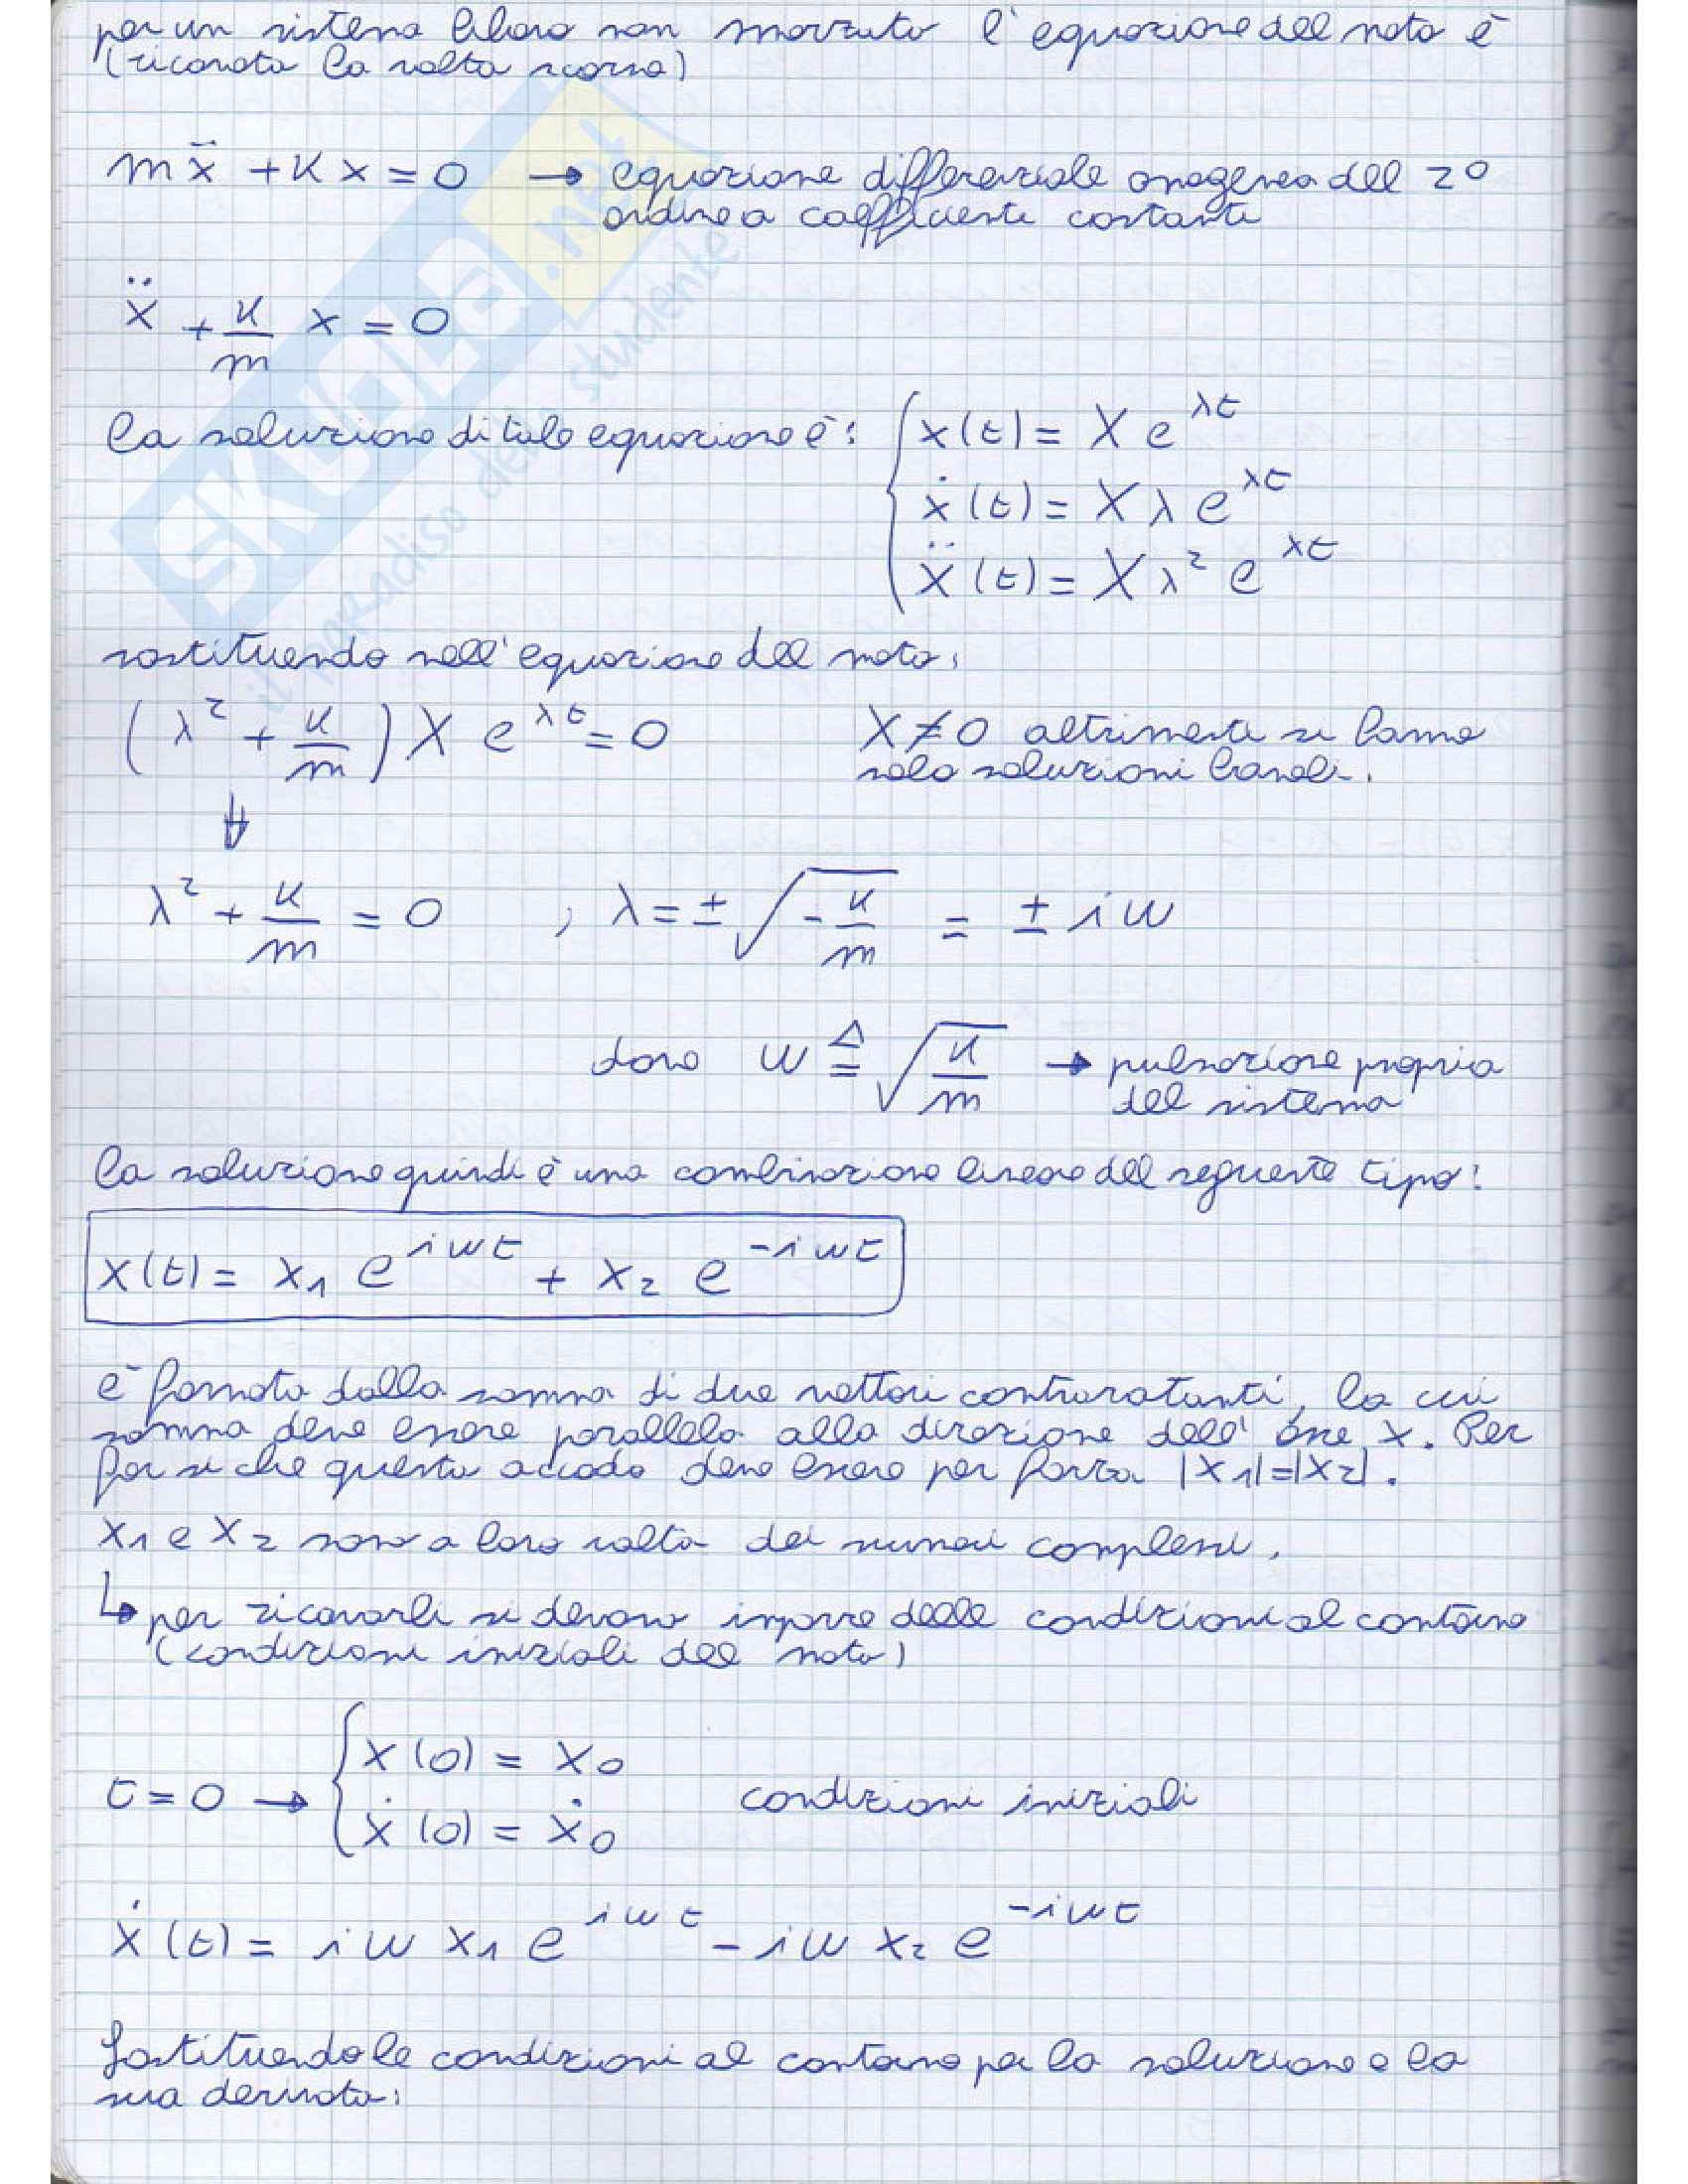 per un sistema libero non smorzato l'equazione del moto è
(ricavata la volta scorsa)
mẍ + kx = 0 → equazione differenziale omogenea del 2°
ordine a coefficienti costanti
ẍ + k/m x = 0
la soluzione di tale equazione è: { x(t) = X e^λt
ẋ(t) = X λ e^λt
ẍ(t) = X λ² e^λt
sostituendo nell'equazione del moto:
(λ² + k/m) X e^λt = 0 X ≠ 0 altrimenti si hanno
solo soluzioni banali.
⇓
λ² + k/m = 0 , λ = ± √(-k/m) = ± iω
dove ω ≜ √(k/m) → pulsazione propria
del sistema
la soluzione quindi è una combinazione lineare del seguente tipo:
x(t) = x₁ e^iωt + x₂ e^-iωt
è formata dalla somma di due vettori controrotanti, la cui
somma deve essere parallela alla direzione dell'asse x. Per
far si che questo accada deve essere per forza |x₁|=|x₂|.
x₁ e x₂ sono a loro volta dei numeri complessi.
↳ per ricavarli si devono imporre delle condizioni al contorno
(condizioni iniziali del moto)
t = 0 → { x(0) = x₀
ẋ(0) = ẋ₀ condizioni iniziali
ẋ(t) = iω x₁ e^iωt - iω x₂ e^-iωt
Sostituendo le condizioni al contorno per la soluzione e la
sua derivata:
SKUOLA.net
il paradiso dello studente